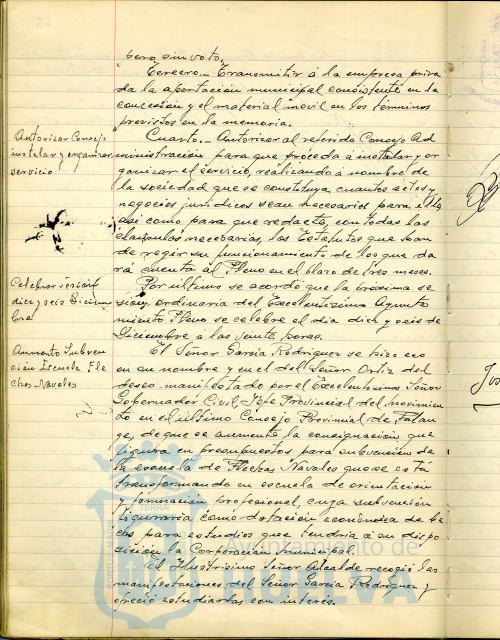 pero sin voto.
Tercero.- Transmitir á la empresa priva
da la aportación municipal consistente en la
concesión y el material móvil en los términos
previstos en la memoria.
Autorizar Consejo
instalar y organizar
servicio
Cuarto.- Autorizar al referido Consejo Ad
ministración para que proceda á instalar y or
ganizar el servicio, realizando á nombre de
la sociedad que se constituya cuantos actos y
negocios jurídicos sean necesarios para ello
así como para que redacte, con todas las
cláusulas necesarias, los Estatutos que han
de regir su funcionamiento de los que da
rá cuenta al Pleno en el plazo de tres meses.
Celebrar sesión
diez y seis Diciem
bre
Por último se acordó que la próxima se
sión ordinaria del Excelentísimo Ayunta
miento Pleno se celebre el día diez y seis de
Diciembre á las veinte horas.
Aumento Subven
ción Escuela Fle
chas Navales
El Señor García Rodríguez se hizo eco
en su nombre y en el del Señor Ortiz del
deseo manifestado por el Excelentísimo Señor
Gobernador Civil, Jefe Provincial del Movimien
to en el último Consejo Provincial de Falan
ge, de que se aumente la consignación que
figura en presupuestos para subvención de
la escuela de Flechas Navales que se está
transformando en escuela de orientación
y formación profesional, cuya subvención
figuraría como dotación económica de be
cas para estudios que tendría á su dispo
sición la Corporación municipal.
El Ilustrísimo Señor Alcalde recogió las
manifestaciones del Señor García Rodríguez y
ofreció estudiarlas con interés.
Ayuntamiento de
HUELVA